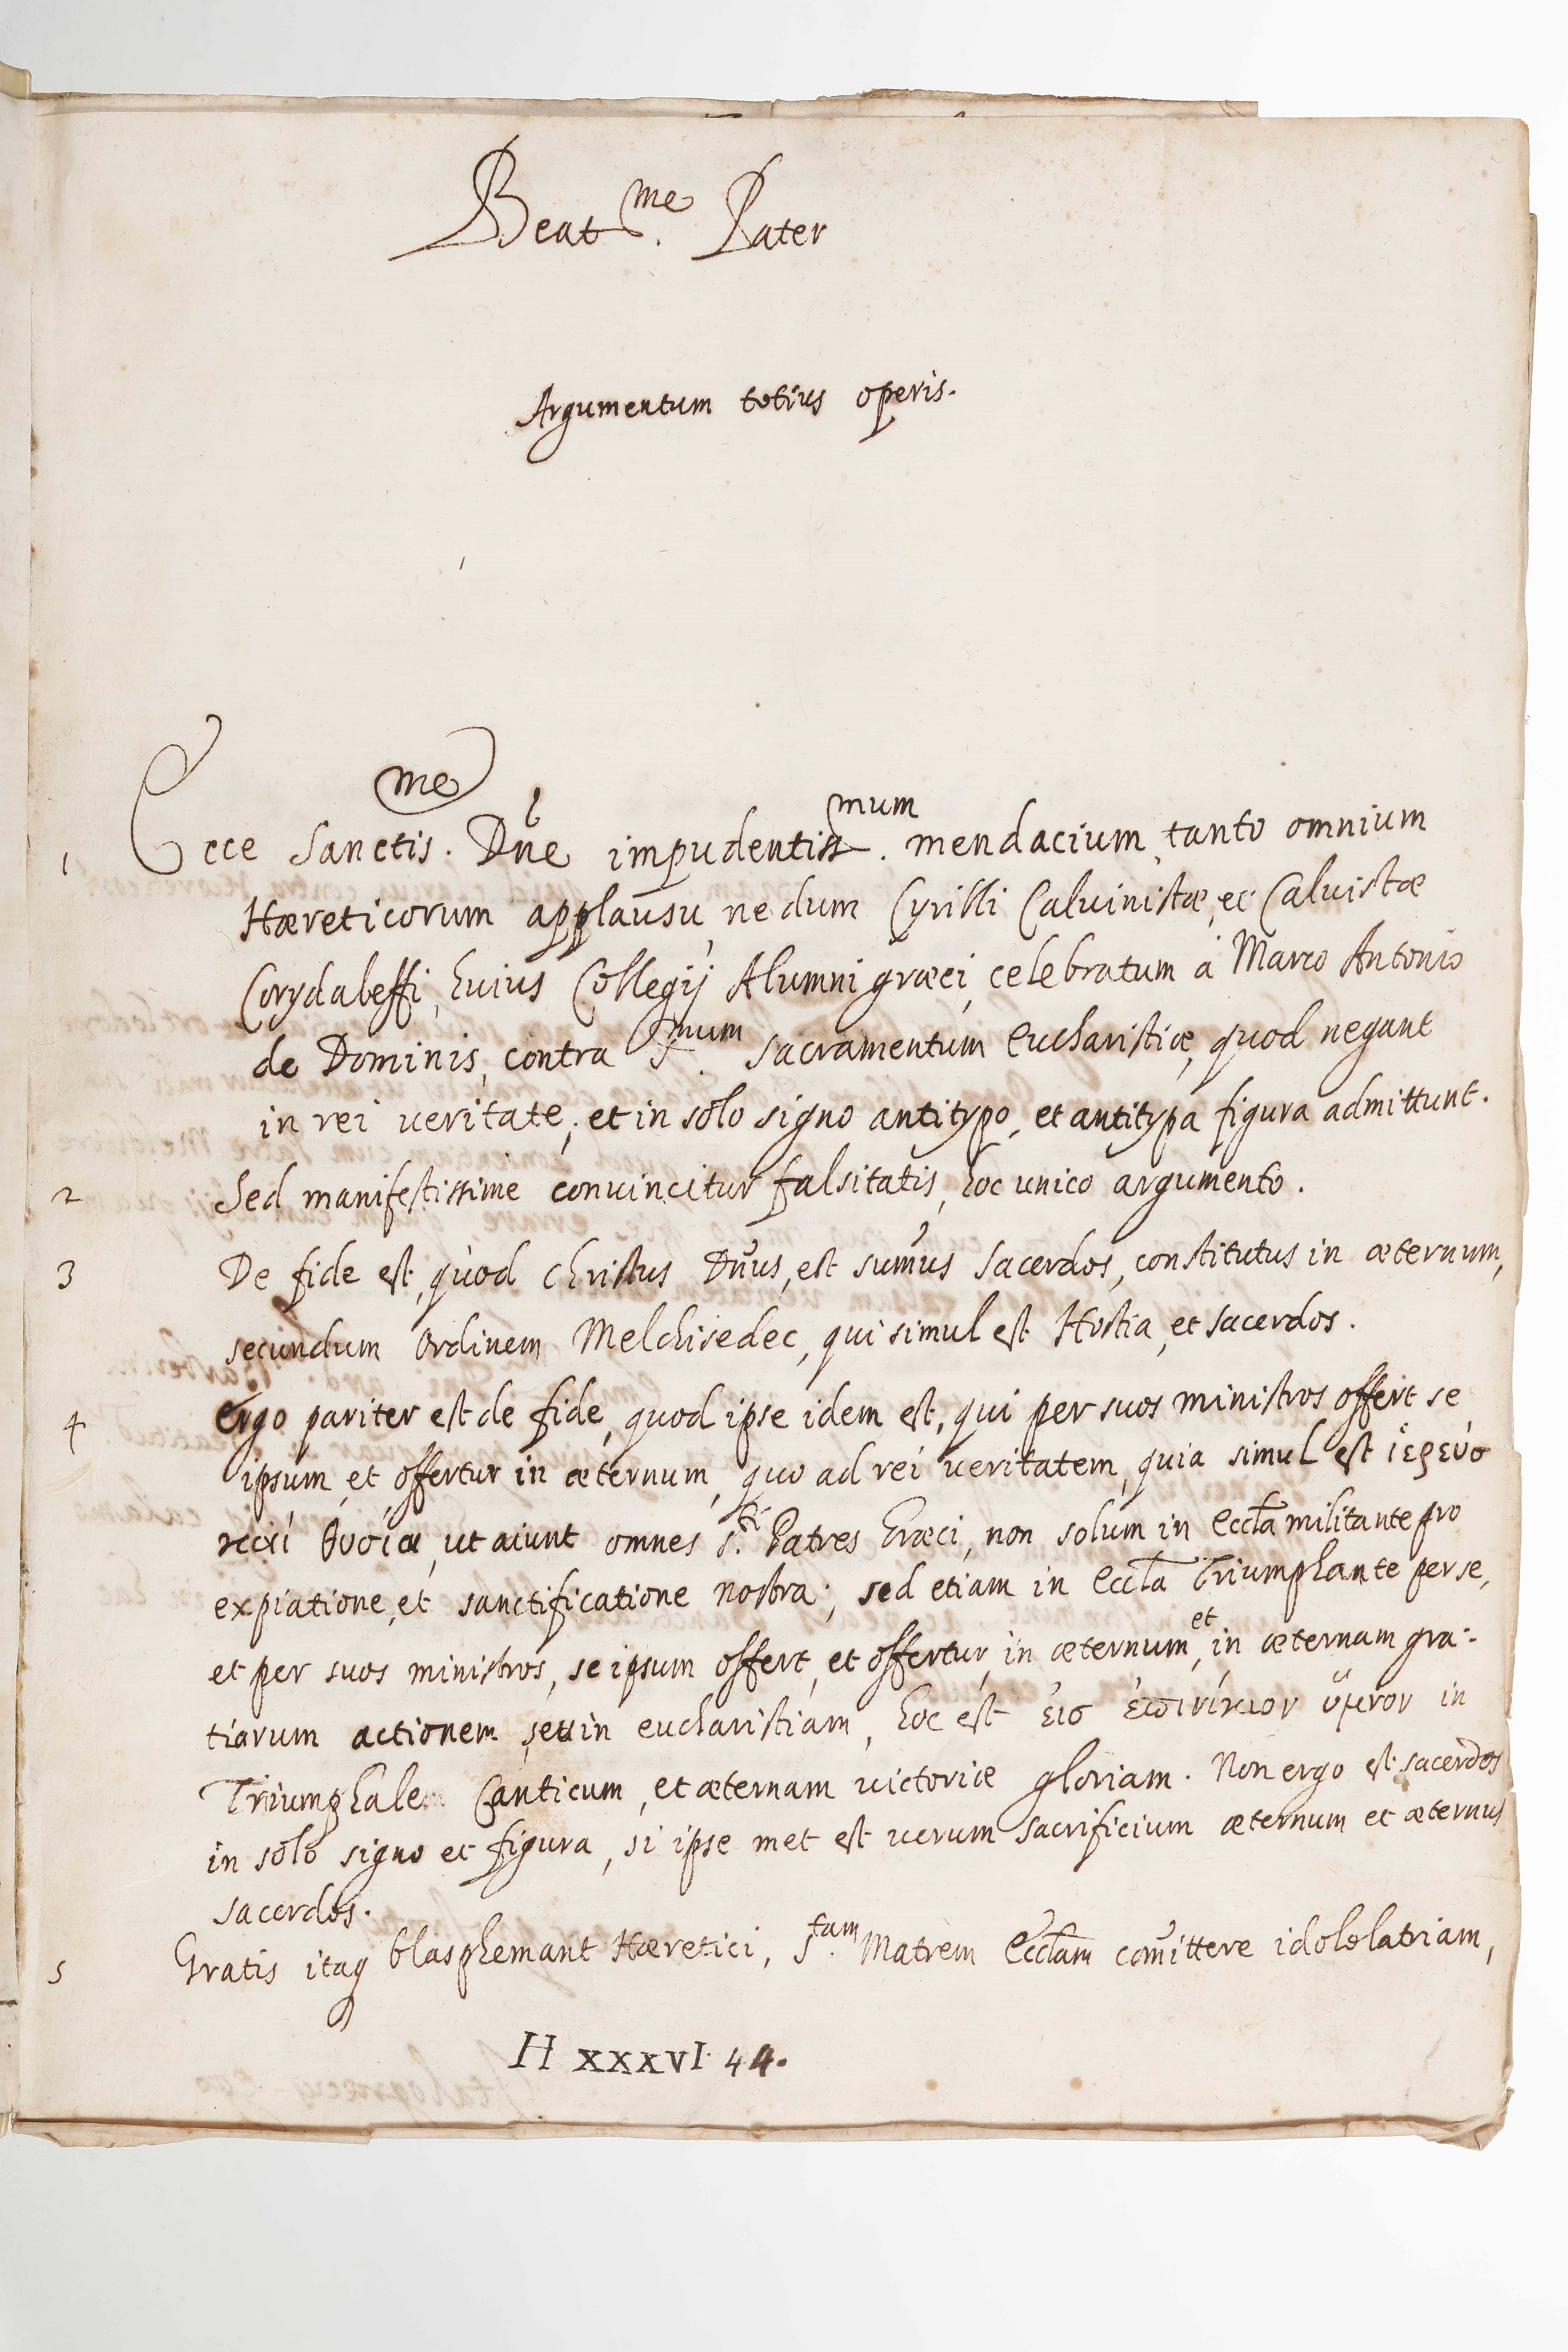 Beat.me Pater
Argumentum totius operis.
1 Ecce Sanctis.me Dñe impudentiss.mum mendacium, tanto omnium
Hæreticorum applausu, nedum Cyrilli Caluinistæ, et Caluistæ
Corydaleffi, huius Collegij Alumni græci, celebratum à Marco Antonio
de Dominis, contra S.mum Sacramentum eucharistiæ, quod negant
in rei ueritate; et in solo signo antitypo, et antitypa figura admittunt.
2 Sed manifestissime conuincitur falsitatis, hoc unico argumento.
3 De fide est, quod Christus Dñus, est sum̃us Sacerdos, constitutus in æternum,
secundum Ordinem Melchisedec, qui simul est Hostia, et sacerdos.
4 ergo pariter est de fide, quod ipse idem est, qui per suos ministros offert se
ipsum, et offertur in æternum, quo ad rei ueritatem, quia simul est ἱερεύσ
καὶ θυσία, ut aiunt omnes S.ti Patres Græci, non solum in Eccl̃a militante pro
expiatione, et sanctificatione nostra; sed etiam in Eccl̃a Triumphante per se,
et per suos ministros, se ipsum offert, et offertur, in æternum, et in æternam gra-
tiarum actionem, seu in eucharistiam, hoc est εἰσ ἐπινίκιον ὕμνον in
Triumphale Canticum, et æternam uictoriæ gloriam. Non ergo est sacerdos
in solo signo et figura, si ipse met est uerum sacrificium æternum et æternus
sacerdos.
5 Gratis itaq blasphemant Hæretici, S.tam Matrem Eccl̃am com̃ittere idololatriam,
H XXXVI. 44.